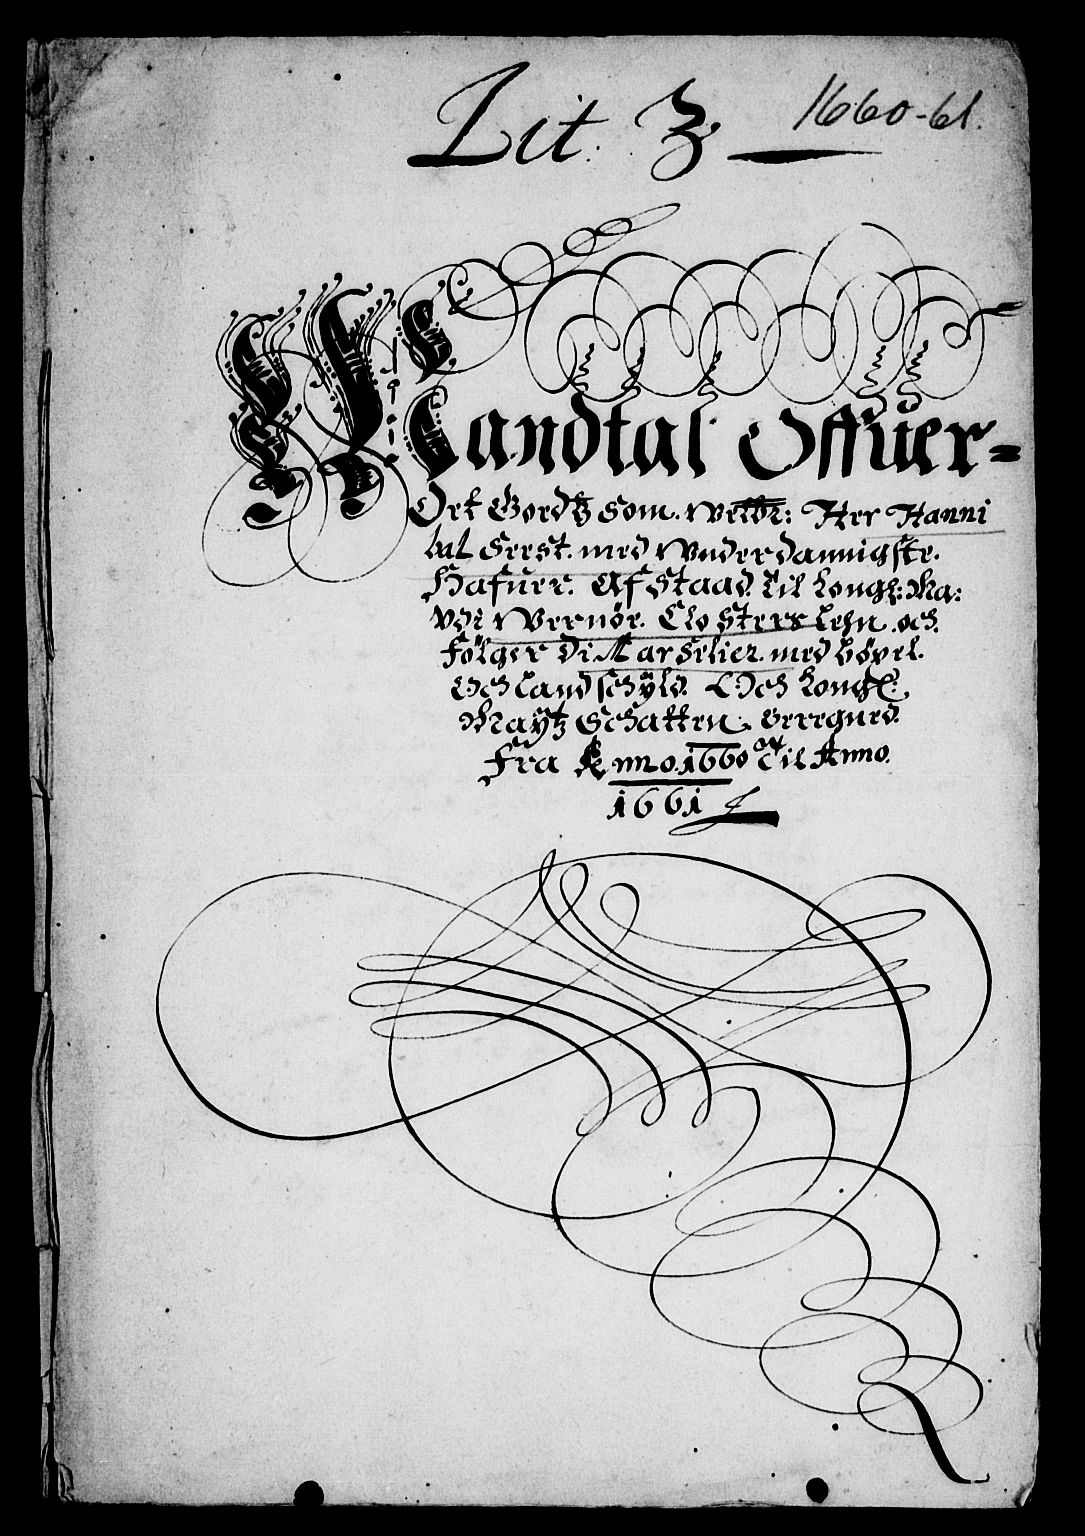 Lit: Z 1660-61.
Mandtal Offuer-
Ort Gordtz Som. Welbr: Her Hanni
bal Seest. med Wnderdannigste.
Hafuer. Af Staad Til Kongl: Ma:
Wernøe. Closters Lehn. och.
følger Di Marselier. med høyel.
Och Landschyld. Och Kongl:
Maytz Schatten. Beregned.
Fra Anno. 1660 Til Anno.
1661